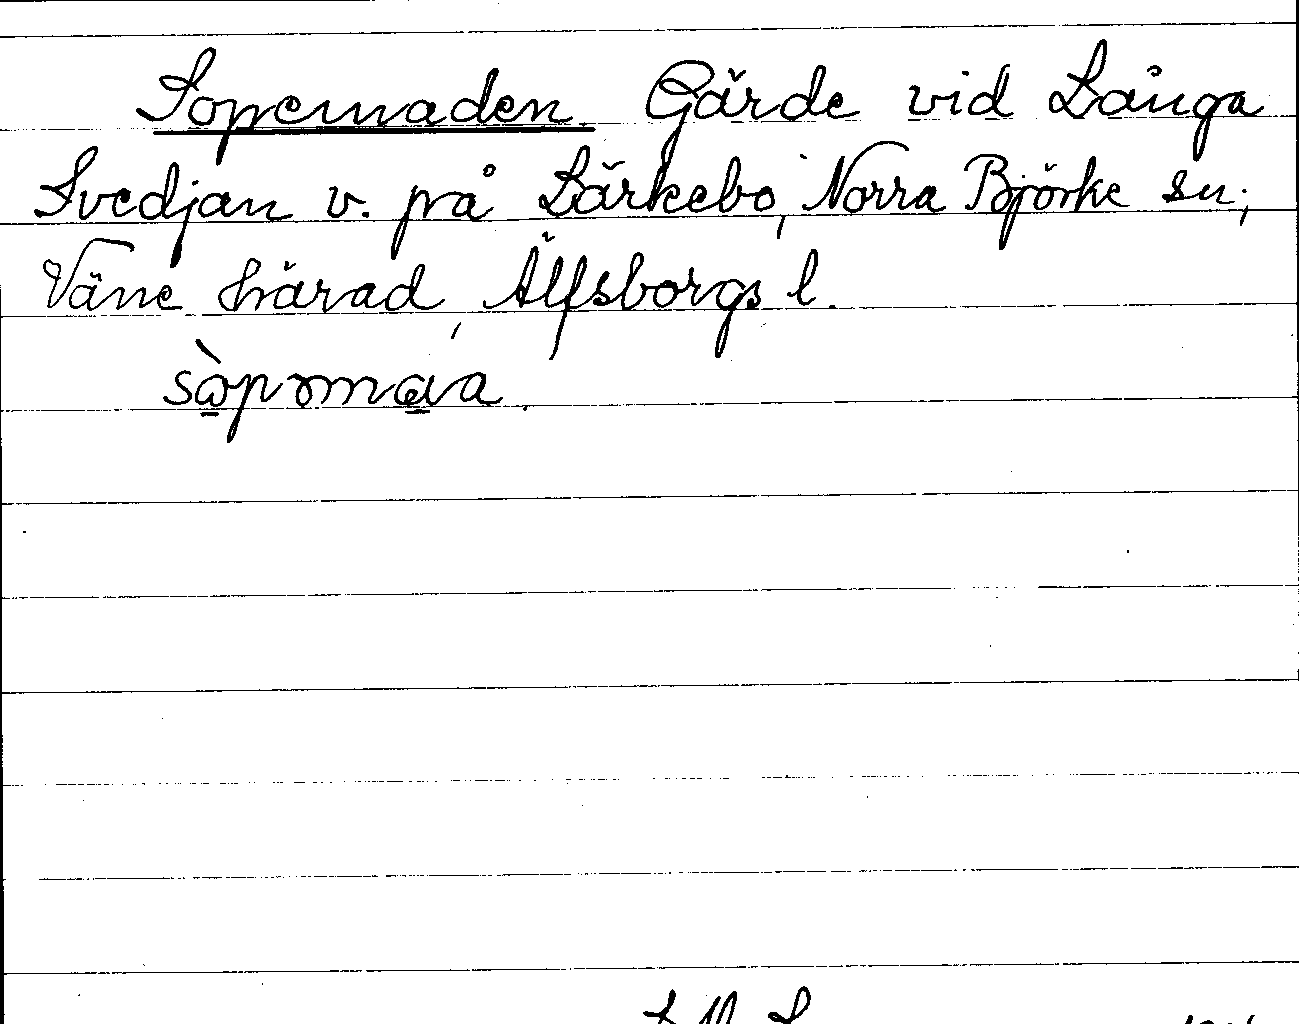 Sopemaden. Gärde vid Långa
Svedjan v. på Lärkebo, Norra Björke sn;
Väne härad, Älfsborgs l.
sòpəmaa.